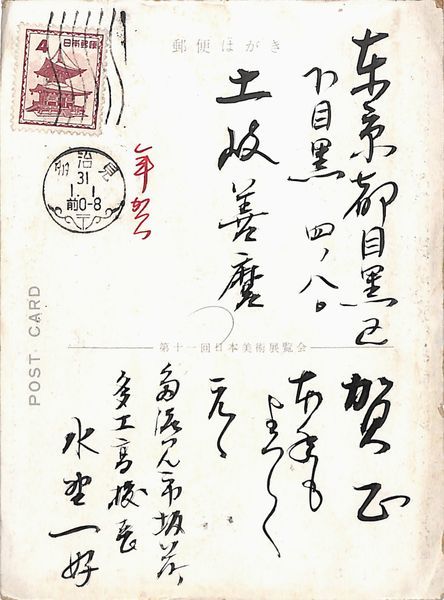 郵便はがき
4
日本郵便
多治見
31
1.1
前0-8
年賀
東京都目黒区
下目黒四ノ八〇
土岐善麿
POST CARD
第十一回日本美術展覧会
賀正
本年も
よろしく
元、
多治見市坂上
多工高校長
水野一好